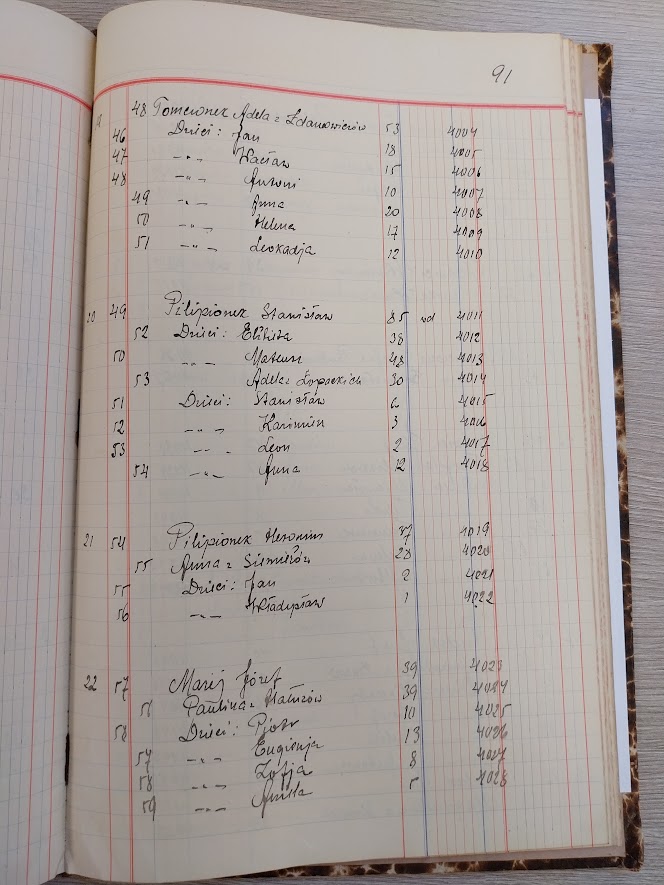 91
48 Tomcionek Adela z Zdanowiczów 53 4004
46 Dzieci: Jan 18 4005
47 -"- Wacław 15 4006
48 -"- Antoni 10 4007
49 -"- Anna 20 4008
50 -"- Helena 17 4009
51 -"- Leokadja 12 4010
20 49 Pilipionek Stanisław 85 wd 4011
52 Dzieci: Elżbieta 38 4012
50 -"- Mateusz 48 4013
53 Adela z 30 4014
51 Dzieci: Stanisław 6 4015
52 -"- Kazimierz 3 4016
53 -"- Leon 2 4017
54 -"- Anna 12 4018
21 54 Pilipionek Heronim 37 4019
55 Anna z 28 4020
55 Dzieci: Jan 2 4021
56 -"- Władysław 1 4022
22 57 Józef 39 4023
Paulina z 39 4024
58 Dzieci: Pjotr 10 4025
57 -"- Eugienja 13 4026
58 -"- Zofja 8 4027
59 -"- 5 4028